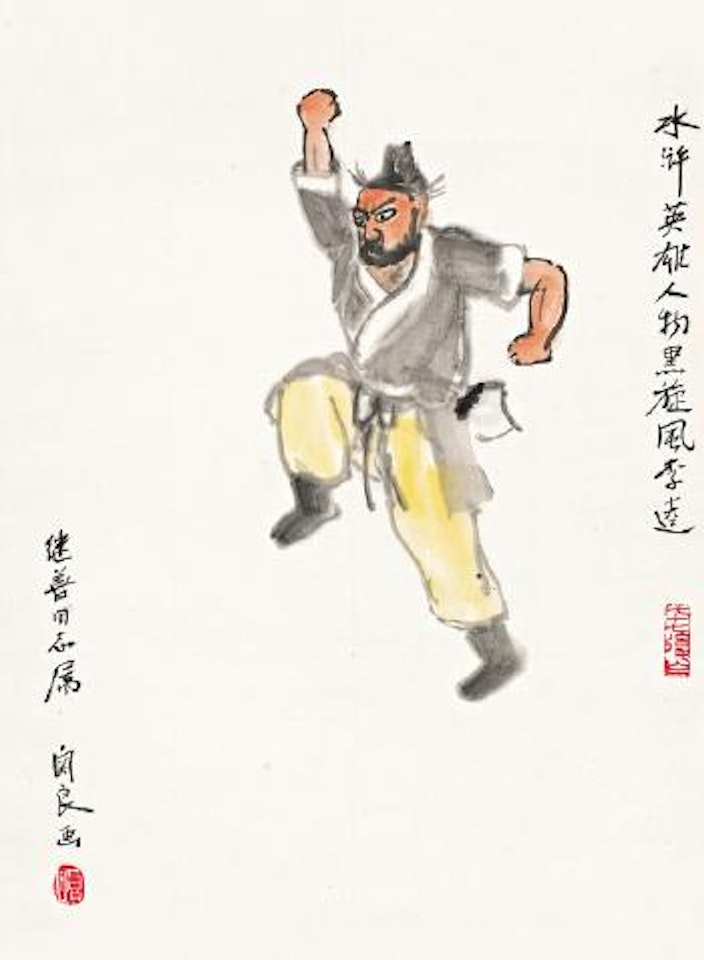 水浒英雄人物黑旋风李逵
继善同志属
関良画